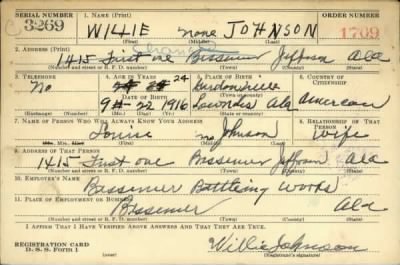 SERIAL NUMBER 1. NAME (Print) ORDER NUMBER
C 3269 WILLIE none JOHNSON 1709
(First) (Middle) (Last)
2. ADDRESS (Print)
1415 First ave Bessemer Jefferson Ala
(Number and street or R. F. D. number) (Town) (County) (State)
3. TELEPHONE 4. AGE IN YEARS 5. PLACE OF BIRTH 6. COUNTRY OF CITIZENSHIP
No 24
DATE OF BIRTH
9 22 1916 Lowndes Ala American
(Exchange) (Number) (Mo.) (Day) (Yr.) (Town or county) (State or country)
7. NAME OF PERSON WHO WILL ALWAYS KNOW YOUR ADDRESS 8. RELATIONSHIP OF THAT PERSON
Louise no Johnson Wife
(Mr., Mrs., Miss) (First) (Middle) (Last)
9. ADDRESS OF THAT PERSON
1415 First ave Bessemer Jefferson Ala
(Number and street or R. F. D. number) (Town) (County) (State)
10. EMPLOYER'S NAME
Bessemer Bottling Works
11. PLACE OF EMPLOYMENT OR BUSINESS
Bessemer Ala
(Number and street or R. F. D. number) (Town) (County) (State)
I AFFIRM THAT I HAVE VERIFIED ABOVE ANSWERS AND THAT THEY ARE TRUE.
REGISTRATION CARD
D. S. S. Form 1
Willie Johnson
(Registrant's signature)